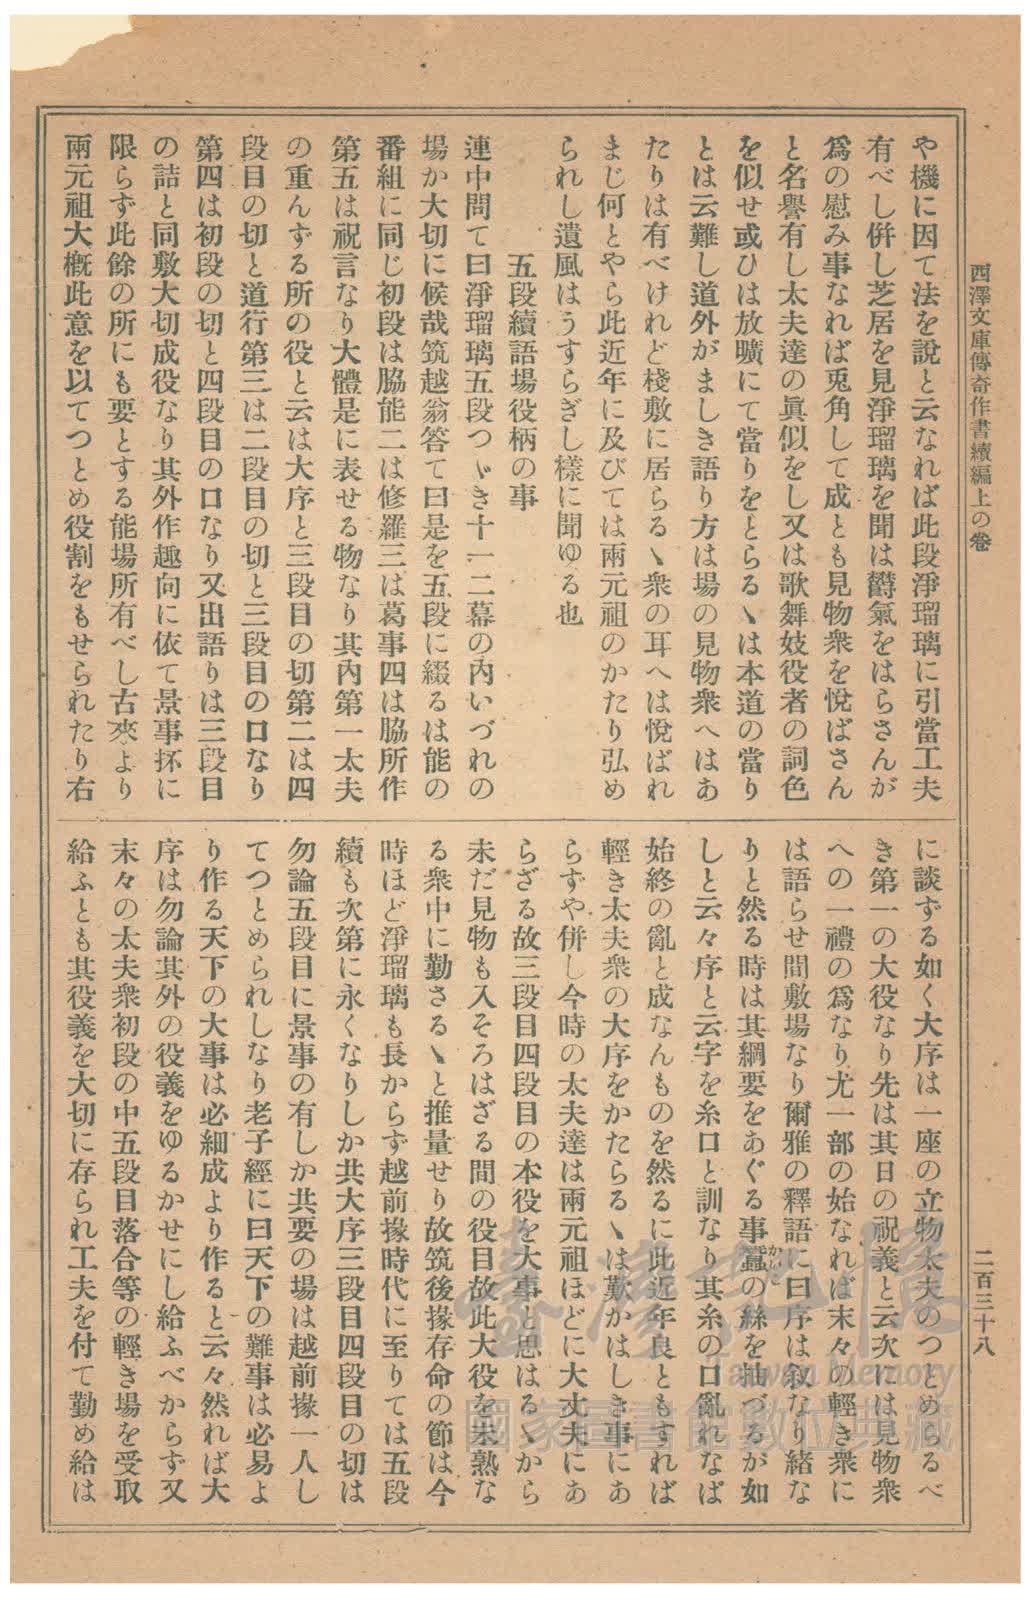 西澤文庫傳奇作書續編上の卷
二百三十八
や機に因て法を說と云なれば此段淨瑠璃に引當工夫
有べし併し芝居を見淨瑠璃を聞は欝氣をはらさんが
爲の慰み事なれば兎角して成とも見物衆を悅ばさん
と名譽有し太夫達の眞似をし又は歌舞妓役者の詞色
を似せ或ひは放曠にて當りをとらるゝは本道の當り
とは云難し道外がましき語り方は場の見物衆へはあ
たりは有べけれど棧敷に居らるゝ衆の耳へは悅ばれ
まじ何とやら此近年に及びては兩元祖のかたり弘め
られし遺風はうすらぎし樣に聞ゆる也
五段續語場役柄の事
連中問て曰淨瑠璃五段つゞき十一二幕の內いづれの
場か大切に候哉筑越翁答て曰是を五段に綴るは能の
番組に同じ初段は脇能二は修羅三は葛事四は脇所作
第五は祝言なり大體是に表せる物なり其內第一太夫
の重んずる所の役と云は大序と三段目の切第二は四
段目の切と道行第三は二段目の切と三段目の口なり
第四は初段の切と四段目の口なり又出語りは三段目
の詰と同敷大切成役なり其外作趣向に依て景事抔に
限らず此餘の所にも要とする能場所有べし古來より
兩元祖大概此意を以てつとめ役割をもせられたり右
に談ずる如く大序は一座の立物太夫のつとめらるべ
き第一の大役なり先は其日の祝義と云次には見物衆
への一禮の爲なり尤一部の始なれば末々の輕き衆に
は語らせ間敷場なり爾雅の釋語に曰序は叙なり緖な
りと然る時は其綱要をあぐる事蠶かいこの絲を抽づるが如
しと云々序と云字を糸口と訓なり其糸の口亂れなば
始終の亂と成なんものを然るに此近年良ともすれば
輕き太夫衆の大序をかたらるゝは歎かはしき事にあ
らずや併し今時の太夫達は兩元祖ほどに大丈夫にあ
らざる故三段目四段目の本役を大事と思はるゝから
未だ見物も入そろはざる間の役目故此大役を未熟な
る衆中に勤さるゝと推量せり故筑後掾存命の節は今
時ほど淨瑠璃も長からず越前掾時代に至りては五段
續も次第に永くなりしか共大序三段目四段目の切は
勿論五段目に景事の有しか共要の場は越前掾一人し
てつとめられしなり老子經に曰天下の難事は必易よ
り作る天下の大事は必細成より作ると云々然れば大
序は勿論其外の役義をゆるかせにし給ふべからず又
末々の太夫衆初段の中五段目落合等の輕き場を受取
給ふとも其役義を大切に存られ工夫を付て勤め給は
臺灣記憶
Taiwan Memory
國家圖書館數位典藏